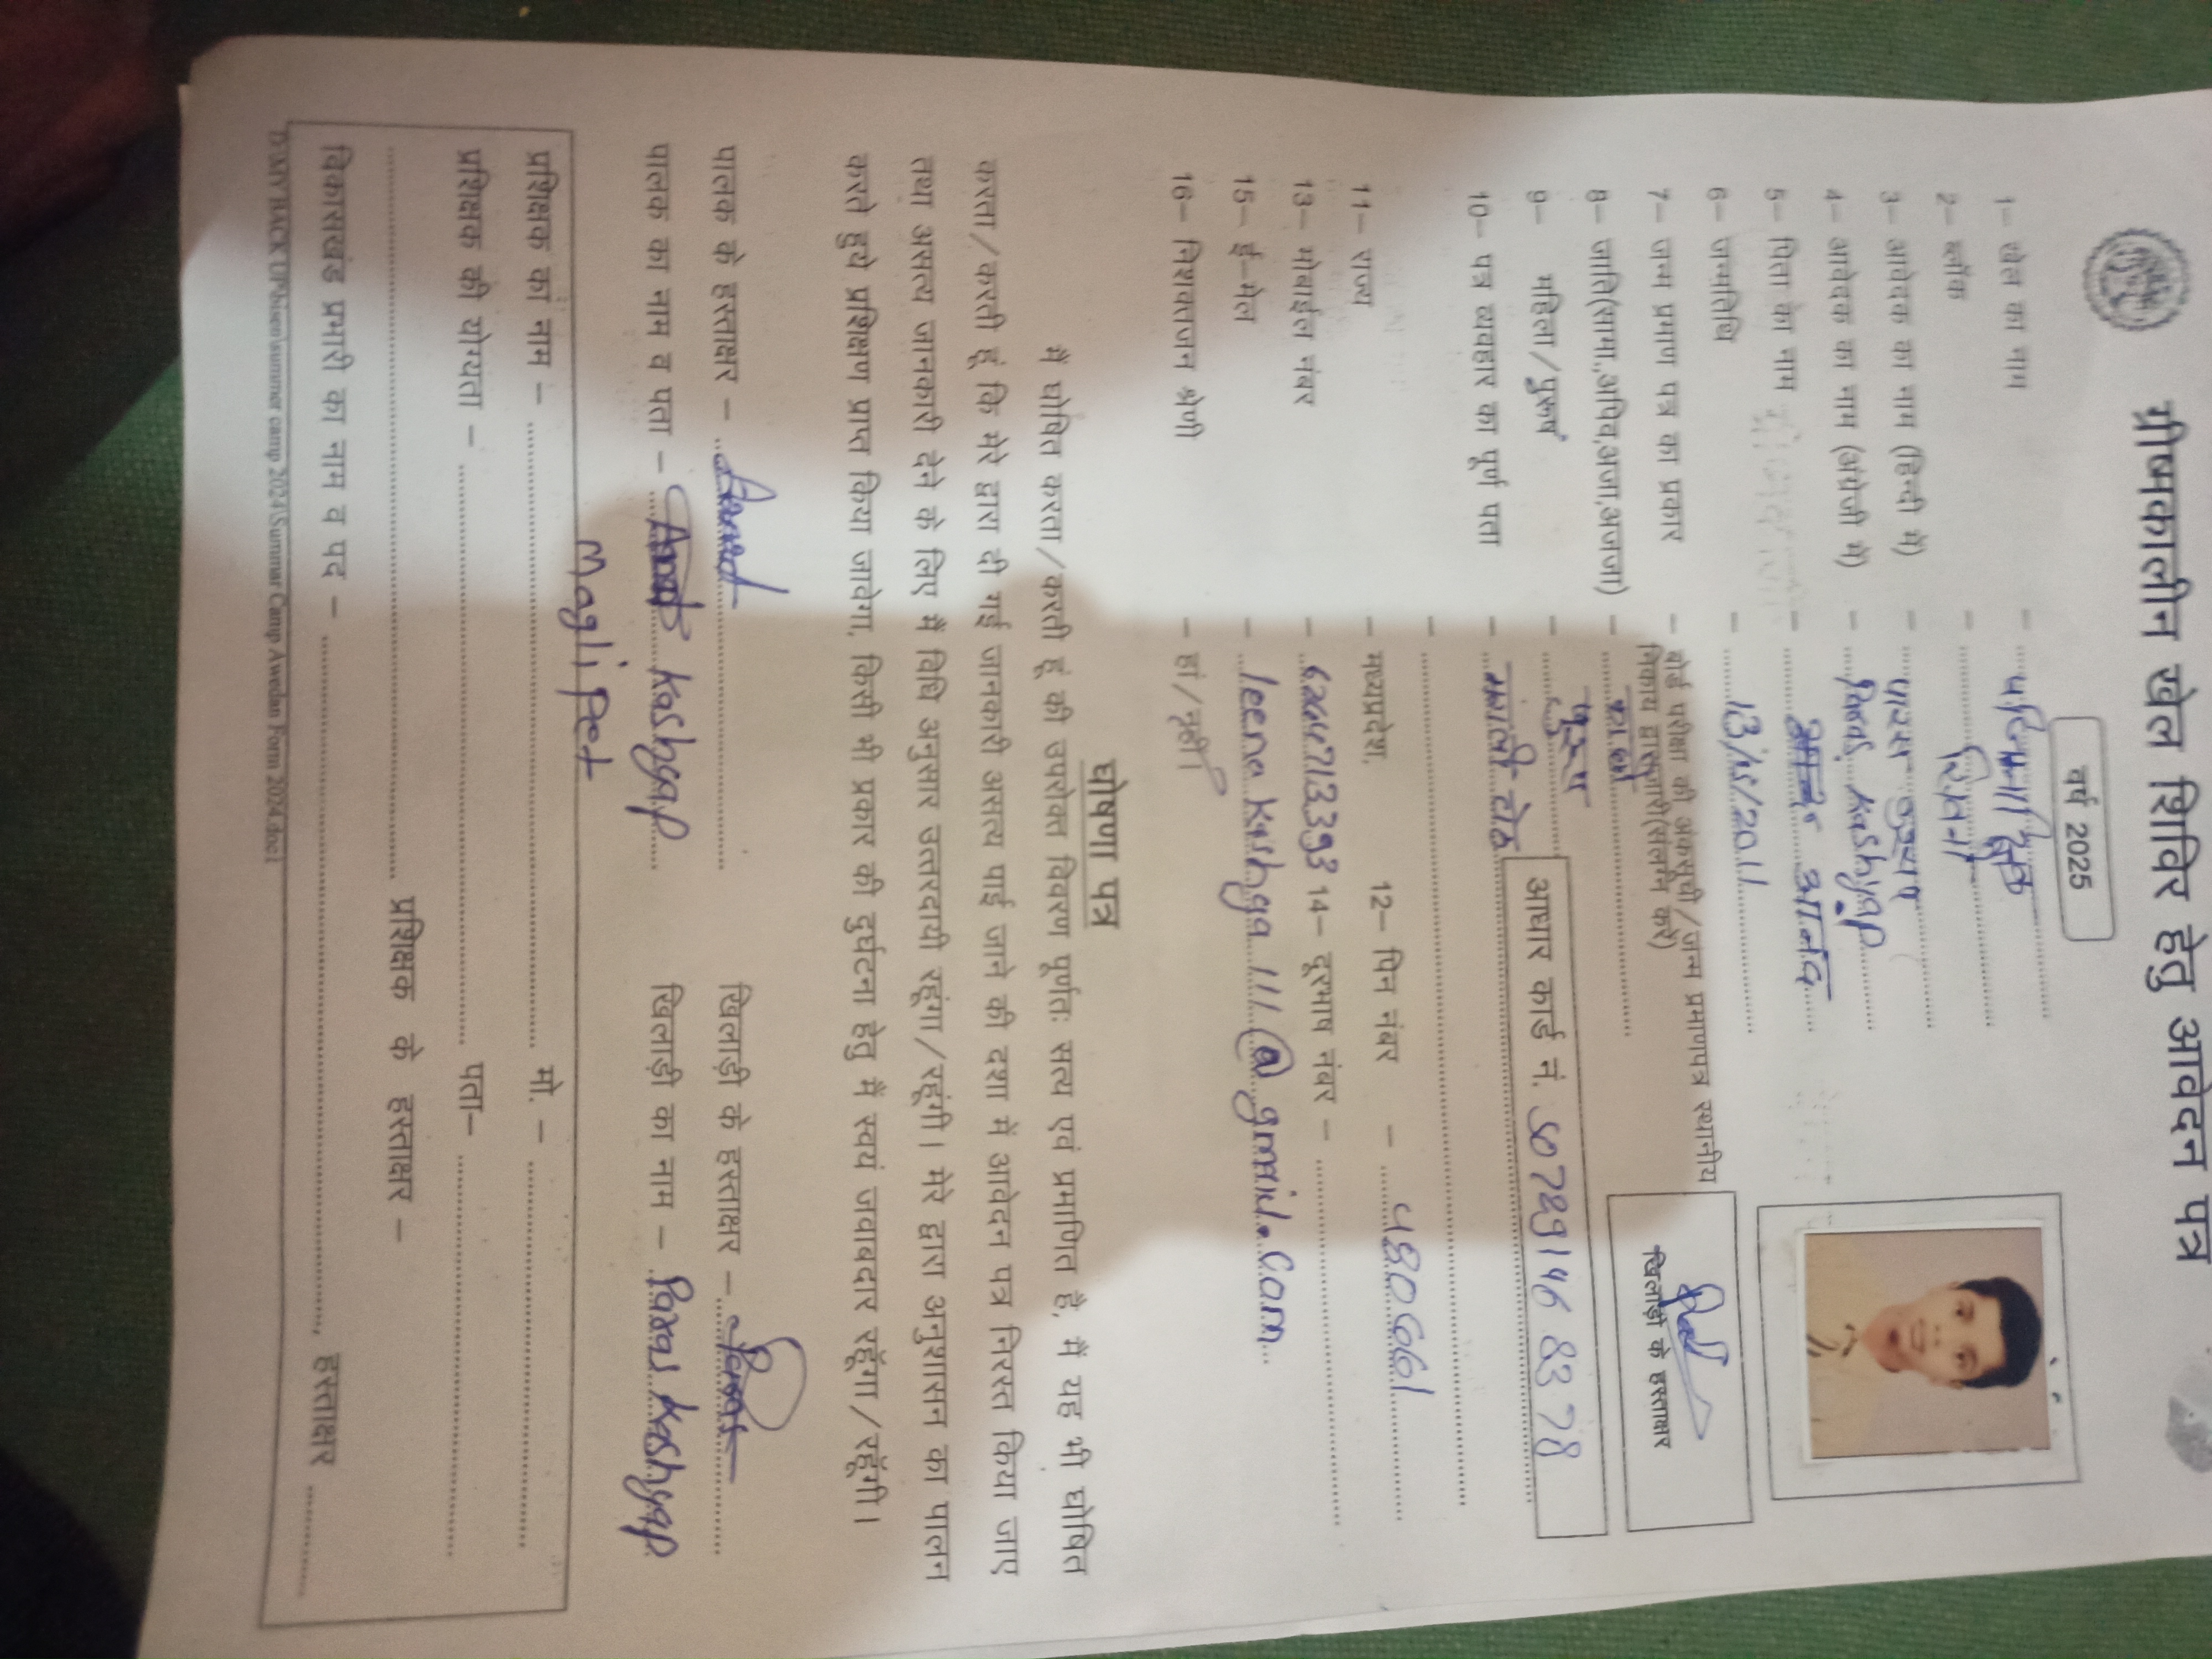 ग्रीष्मकालीन खेल शिविर हेतु आवेदन पत्र
वर्ष 2025
1– खेल का नाम –
2– ब्लॉक –
3– आवेदक का नाम (हिन्दी में) – पारस कश्यप
4– आवेदक का नाम (अंग्रेजी में) – Paras Kashyap
5– पिता का नाम – आनंद
6– जन्मतिथि –
7– जन्म प्रमाण पत्र का प्रकार – बोर्ड परीक्षा की अंकसूची/जन्म प्रमाणपत्र स्थानीय
निकाय द्वारा जारी(संलग्न करें)
खिलाड़ी के हस्ताक्षर
8– जाति(सामा,अपिव,अजा,अजजा) –
9– महिला/पुरूष – पुरुष
आधार कार्ड नं. 5072 9146 8378
10– पत्र व्यवहार का पूर्ण पता –
11– राज्य – मध्यप्रदेश, 12– पिन नंबर – 480661
13– मोबाईल नंबर – 14– दूरभाष नंबर –
15– ई–मेल – @gmail.com
16– निशक्तजन श्रेणी – हां/नहीं।
घोषणा पत्र
में घोषित करता/करती हूं की उपरोक्त विवरण पूर्णतः सत्य एवं प्रमाणित है, मैं यह भी घोषित
करता/करती हूं कि मेरे द्वारा दी गई जानकारी असत्य पाई जाने की दशा में आवेदन पत्र निरस्त किया जाए
तथा असत्य जानकारी देने के लिए मैं विधि अनुसार उत्तरदायी रहूंगा/रहूंगी। मेरे द्वारा अनुशासन का पालन
करते हुये प्रशिक्षण प्राप्त किया जावेगा, किसी भी प्रकार की दुर्घटना हेतु मैं स्वयं जवाबदार रहूंगा/रहूंगी।
पालक के हस्ताक्षर – खिलाड़ी के हस्ताक्षर –
पालक का नाम व पता – Kashyap खिलाड़ी का नाम – Paras Kashyap
Maglipet
प्रशिक्षक का नाम – मो. –
प्रशिक्षक की योग्यता – पता–
प्रशिक्षक के हस्ताक्षर –
विकासखंड प्रभारी का नाम व पद – , हस्ताक्षर